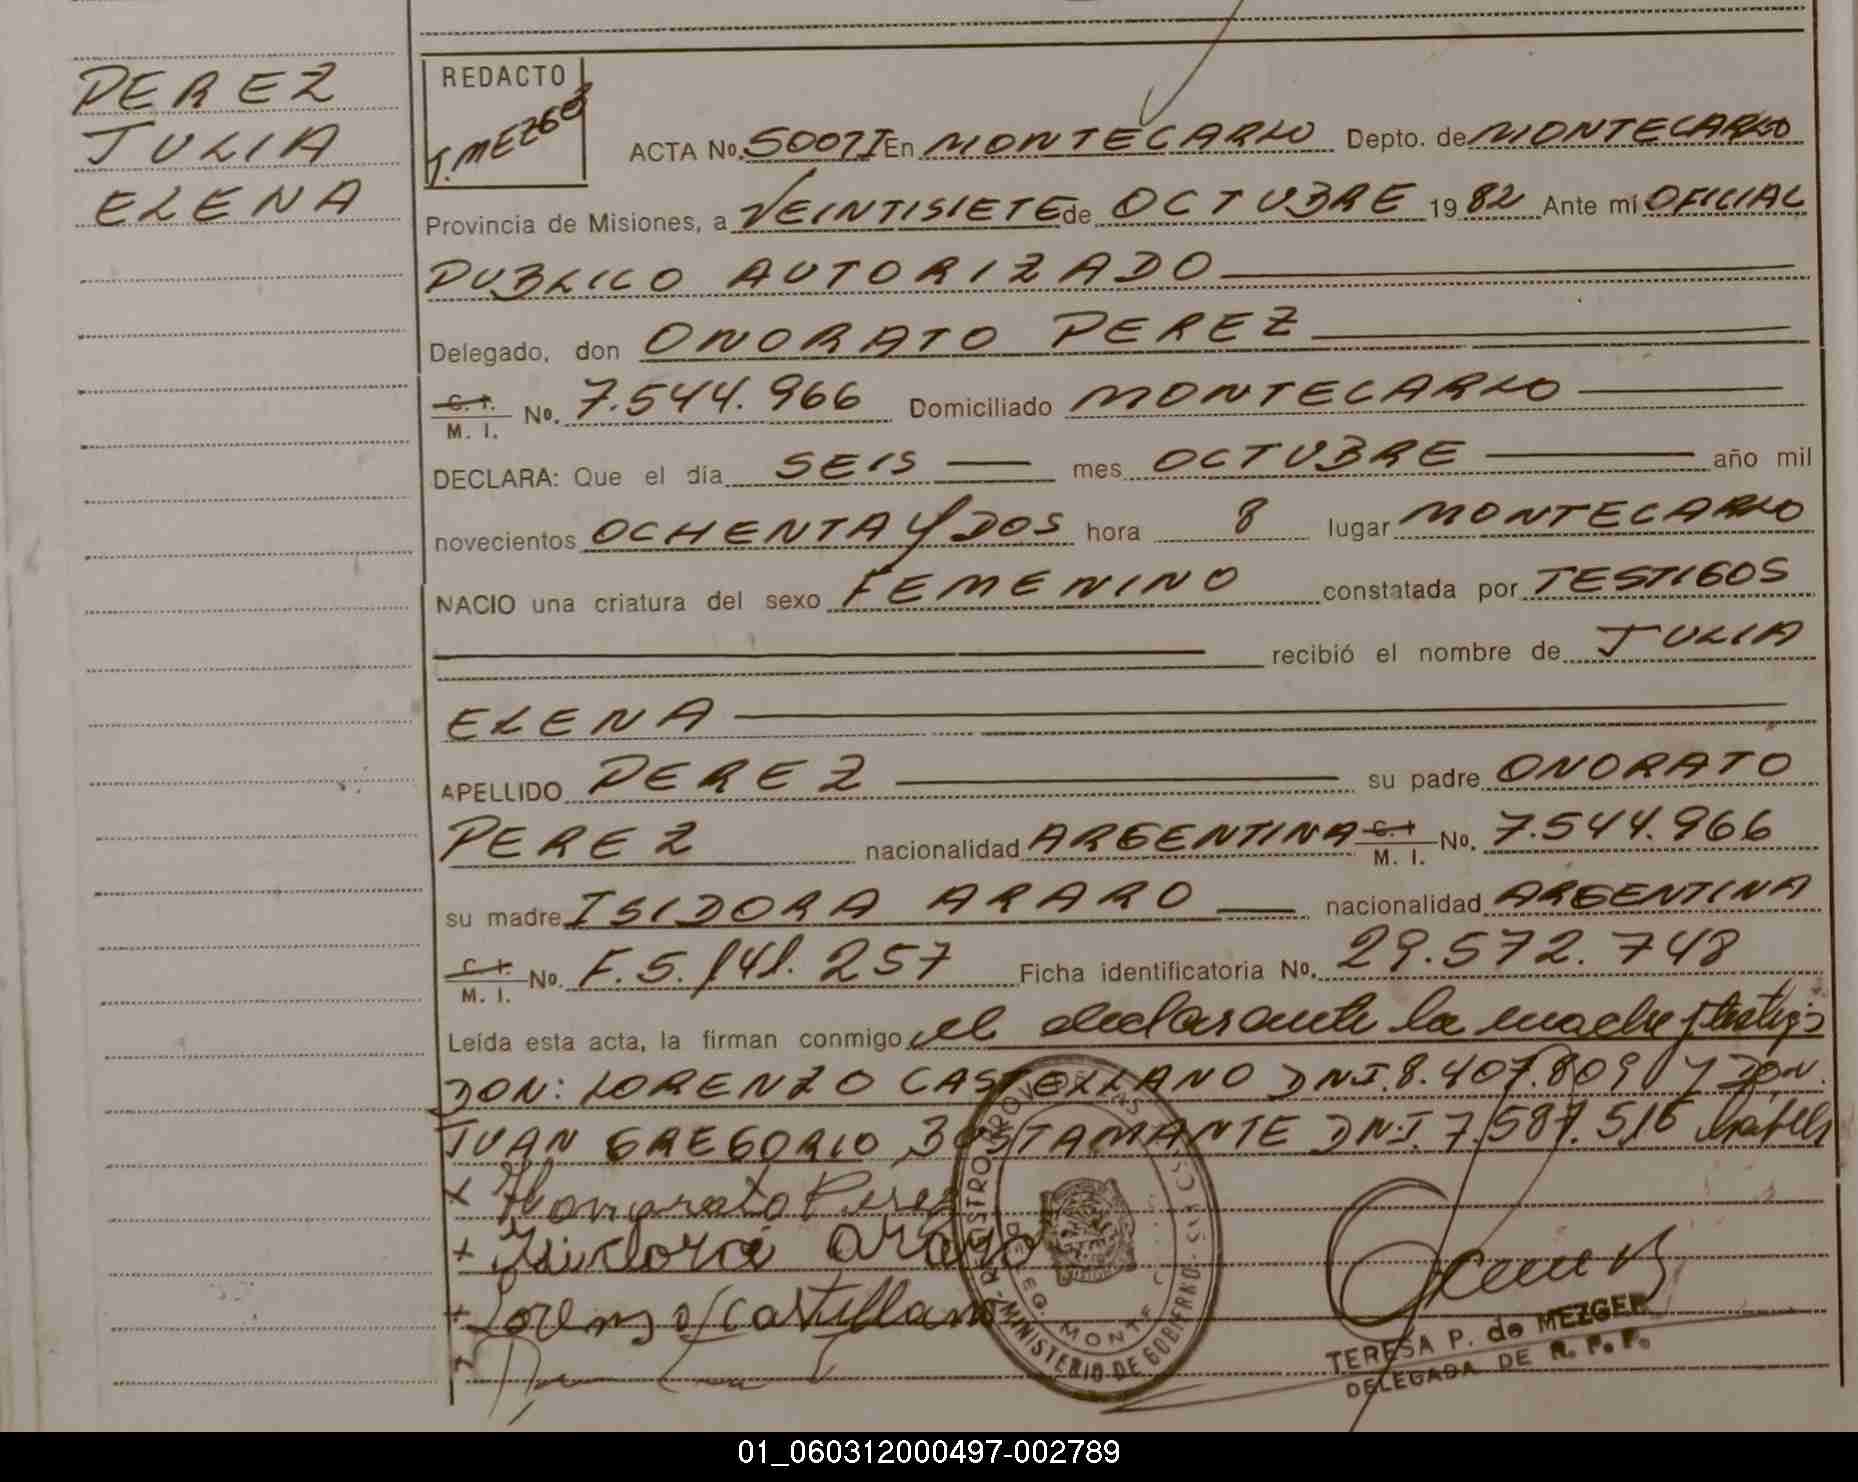 PEREZ
JULIA
ELENA
REDACTO
T. MEZGER
ACTA No. 5007I En MONTECARLO Depto. de MONTECARLO
Provincia de Misiones, a VEINTISIETE de OCTUBRE 1982 Ante mi OFICIAL
PUBLICO AUTORIZADO
Delegado, don ONORATO PEREZ
C. I. M. I. No. 7.544.966 Domiciliado MONTECARLO
DECLARA: Que el día SEIS mes OCTUBRE año mil
novecientos OCHENTA Y DOS hora 8 lugar MONTECARLO
NACIO una criatura del sexo FEMENINO constatada por TESTIGOS
recibió el nombre de JULIA
ELENA
APELLIDO PEREZ su padre ONORATO
PEREZ nacionalidad ARGENTINA C. I. M. I. No. 7.544.966
su madre ISIDORA ARARO nacionalidad ARGENTINA
C. I. M. I. No. F.5.141.257 Ficha identificatoria No. 29.572.748
Leída esta acta, la firman conmigo el declarante la madre y testigos
DON: LORENZO CASTELLANO DNI. 8.407.809 Y DON.
JUAN GREGORIO BUSTAMANTE DNI. 7.587.516
x Honorato Perez
+ Isidora
+ Lorenzo Castellano
REGISTRO PROV. DE LAS
MINISTERIO DE GOBIERNO
DELEG. MONTE
TERESA P. de MEZGER
DELEGADA DE R. P. P.
01_060312000497-002789